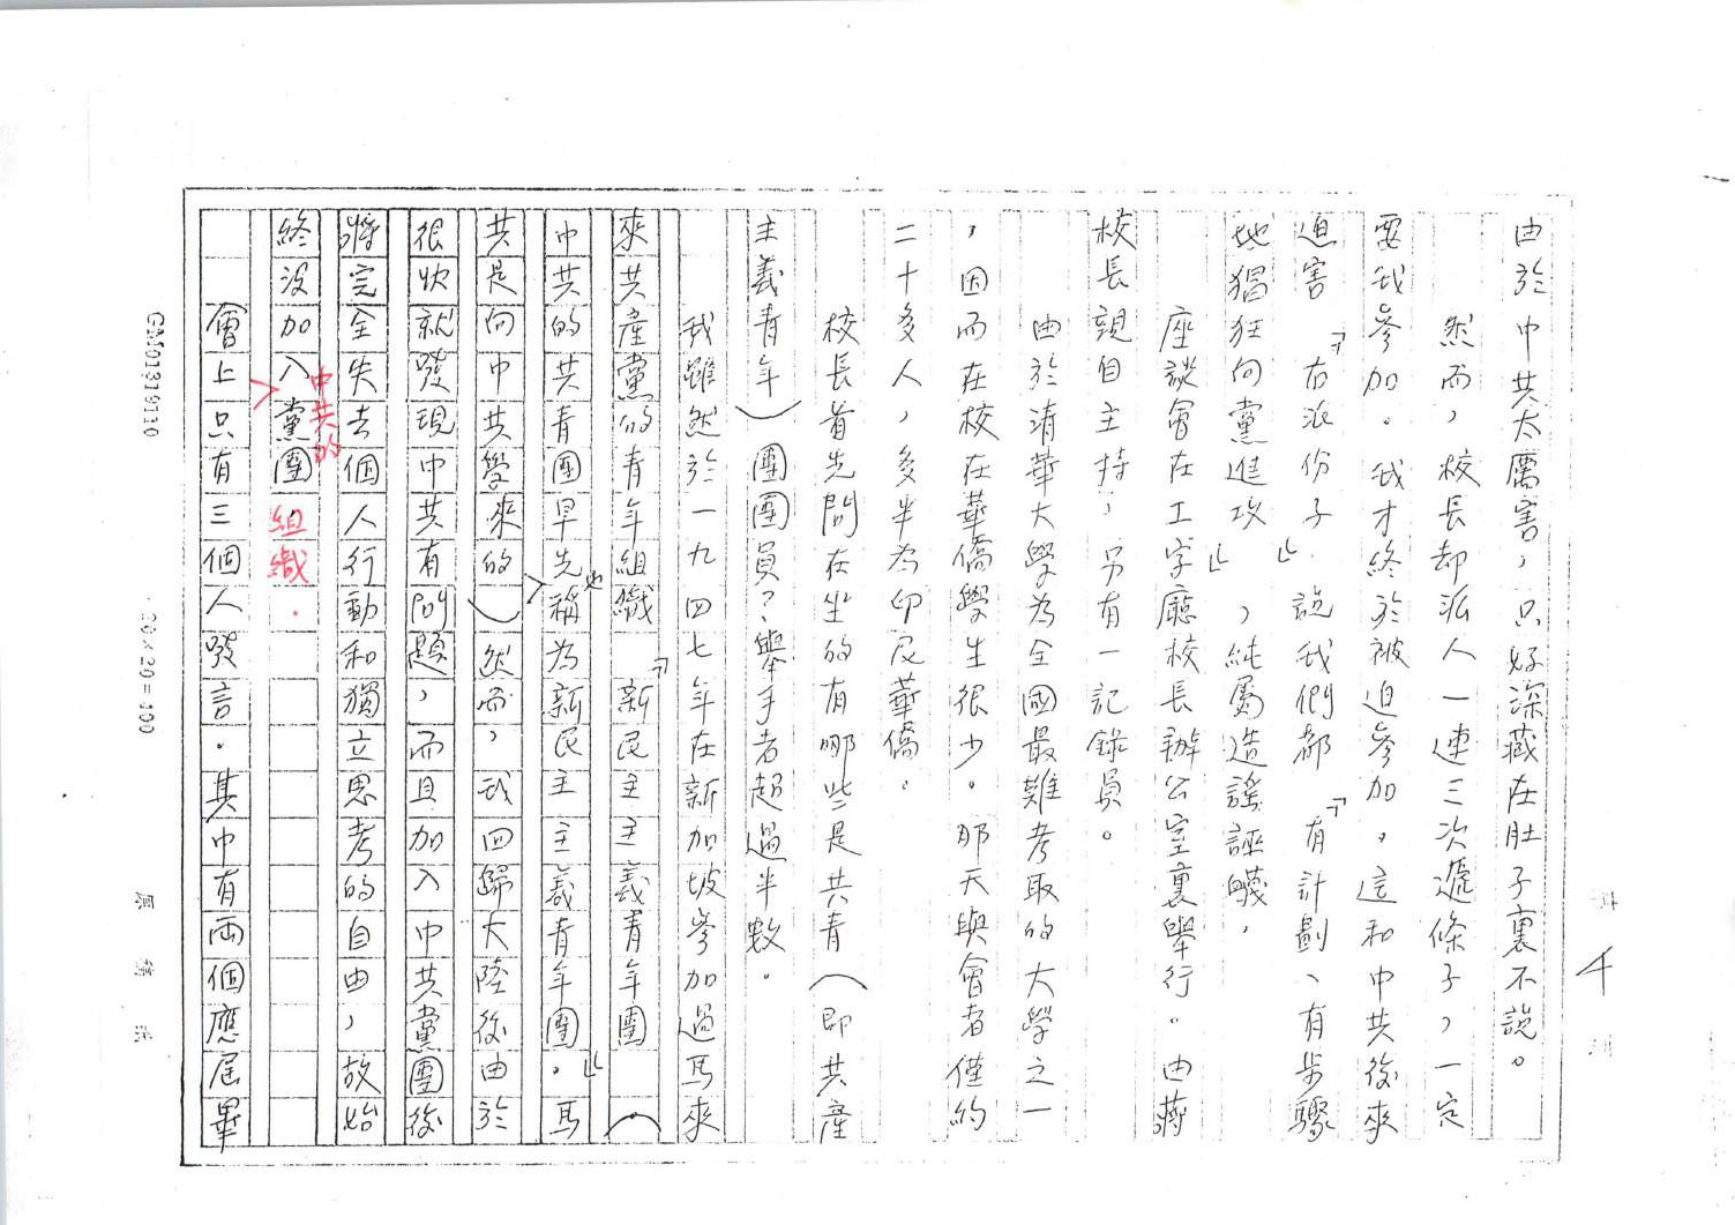 由於中共太厲害，只好深藏在肚子裏不説。
然而，校長却派人一連三次遞條子，一定
要我參加。我才終於被迫參加。這和中共後來
迫害『右派份子』説我們都『有計劃、有步驟
地猖狂向黨進攻』，純屬造謠誣衊，
座談會在工字廳校長辦公室裏舉行。由蔣
校長親自主持，另有一記錄員。
由於清華大學為全國最難考取的大學之一
，因而在校在華僑學生很少。那天與會者僅約
二十多人，多半為印尼華僑。
校長首先問在坐的有哪些是共青（即共產
主義青年）團團員？舉手者超過半數。
我雖然於一九四七年在新加坡參加過馬來
來共產黨的青年組織『新民主主義青年團（
中共的共青團早先也稱為新民主主義青年團。』馬
共是向中共學來的）然而，我回歸大陸後由於
很快就發現中共有問題，而且加入中共黨團後
將完全失去個人行動和獨立思考的自由，故始
終没加入中共的黨團組織。
會上只有三個人發言。其中有両個應屆畢
GM01319110
20×20=400
原稿紙